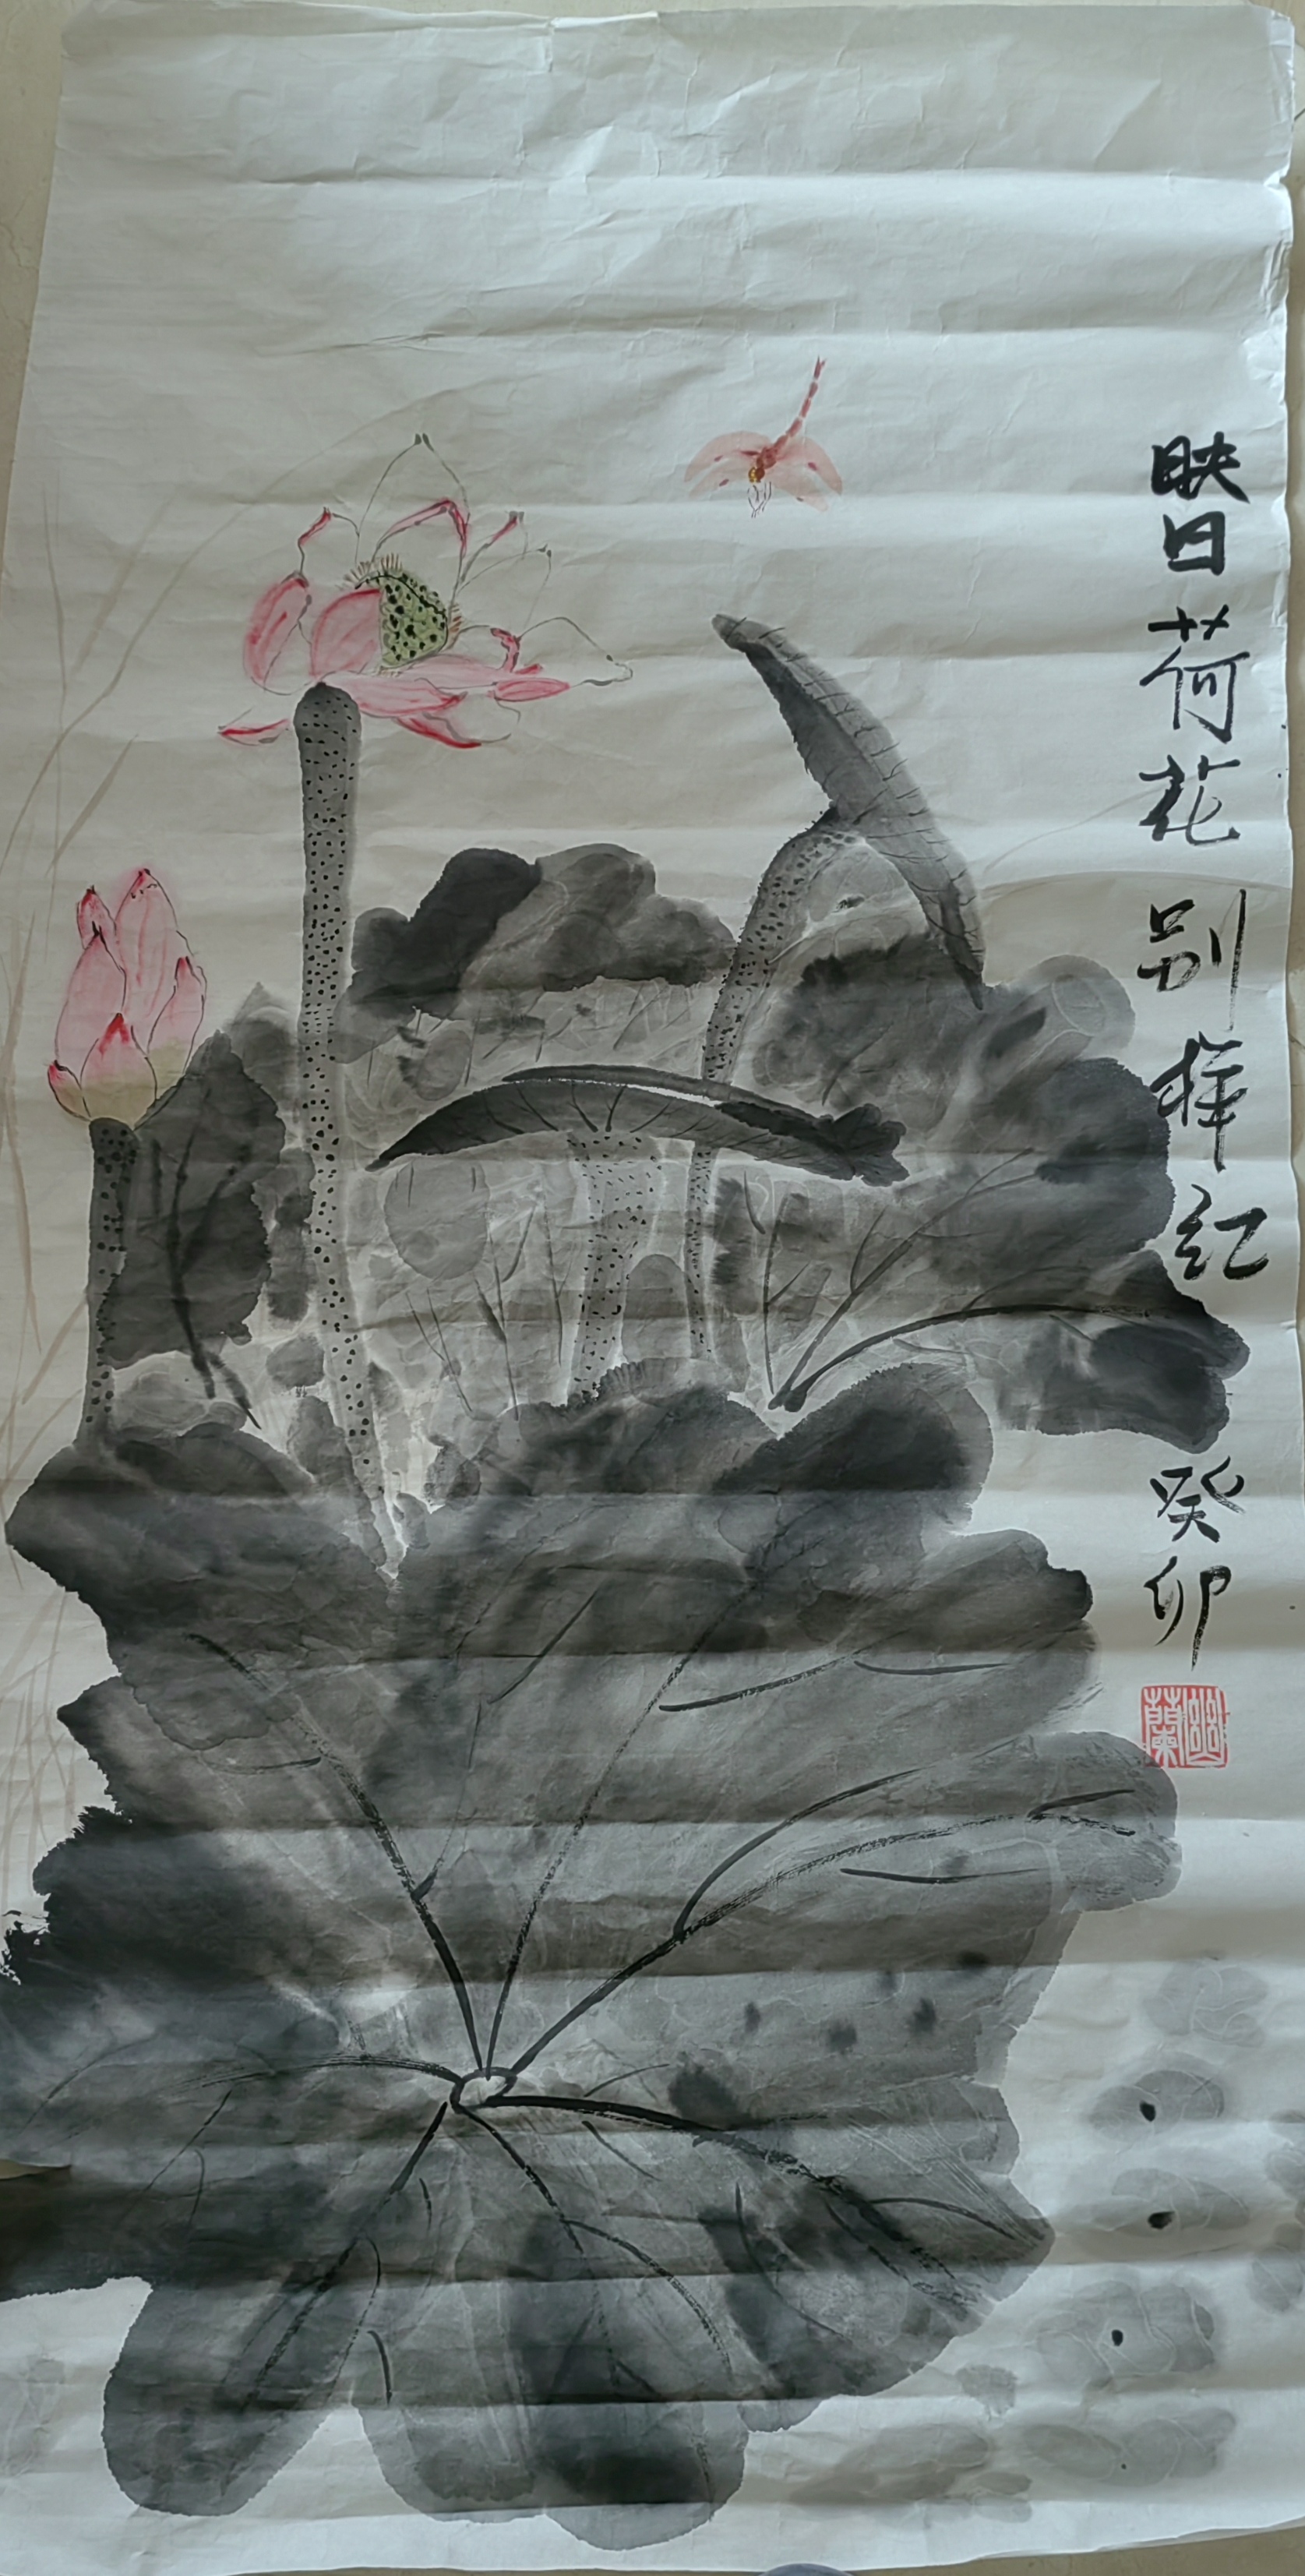 映日荷花别样红 癸卯
幽蘭